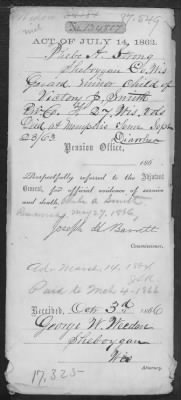 Widow 37,549
No. 134887
ACT OF JULY 14, 1862.
Phebe A. Irving
Sheboygan Co, Wis
Guard. Minor Child of
Victory J. Smith
Co. F. 27, Wis. Vols
Died at Memphis Tenn Sept
29/63 Diarrhea
Pension Office,
186
Respectfully referred to the Adjutant
General, for official evidence of service
and death. Phebe A. Smith
May 27, 1866,
Joseph H. Barrett
Commissioner.
Ad. March. 14. 186
Paid to Mch 4-1866
Received, Oct 3rd 1866
George W. Weeden
Sheboygan
Wis
Attorney.
17,325